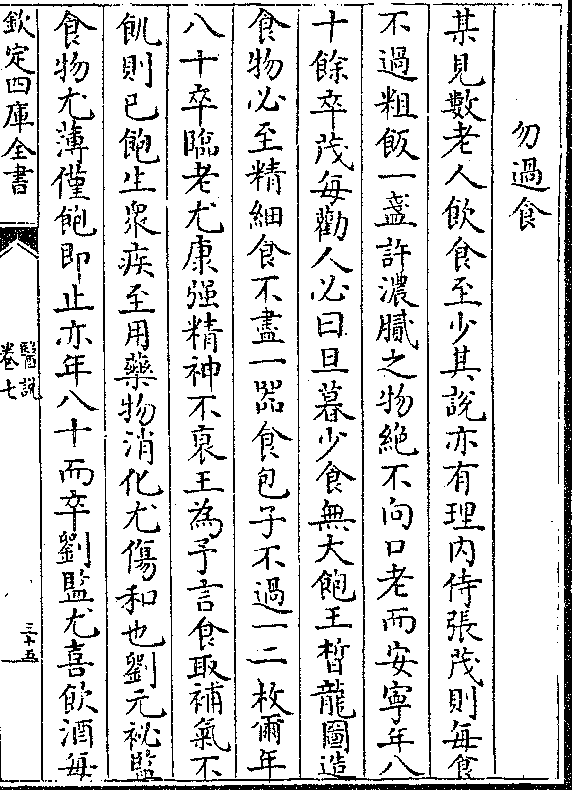 勿過食
某見數老人飲食至少其說亦有理内侍張茂則每食
不過粗飯一盞許濃膩之物絶不向口老而安寧年八
十餘卒茂每勸人必曰旦暮少食無大飽王晳龍圖造
食物必至精細食不盡一器食包子不過一二枚爾年
八十卒臨老尤康强精神不衰王為予言食取補氣不
飢則已飽生衆疾至用藥物消化尤傷和也劉元祕監
食物尤薄僅飽即止亦年八十而卒劉監尤喜飲酒每
欽定四庫全書
醫說
卷七
三十五